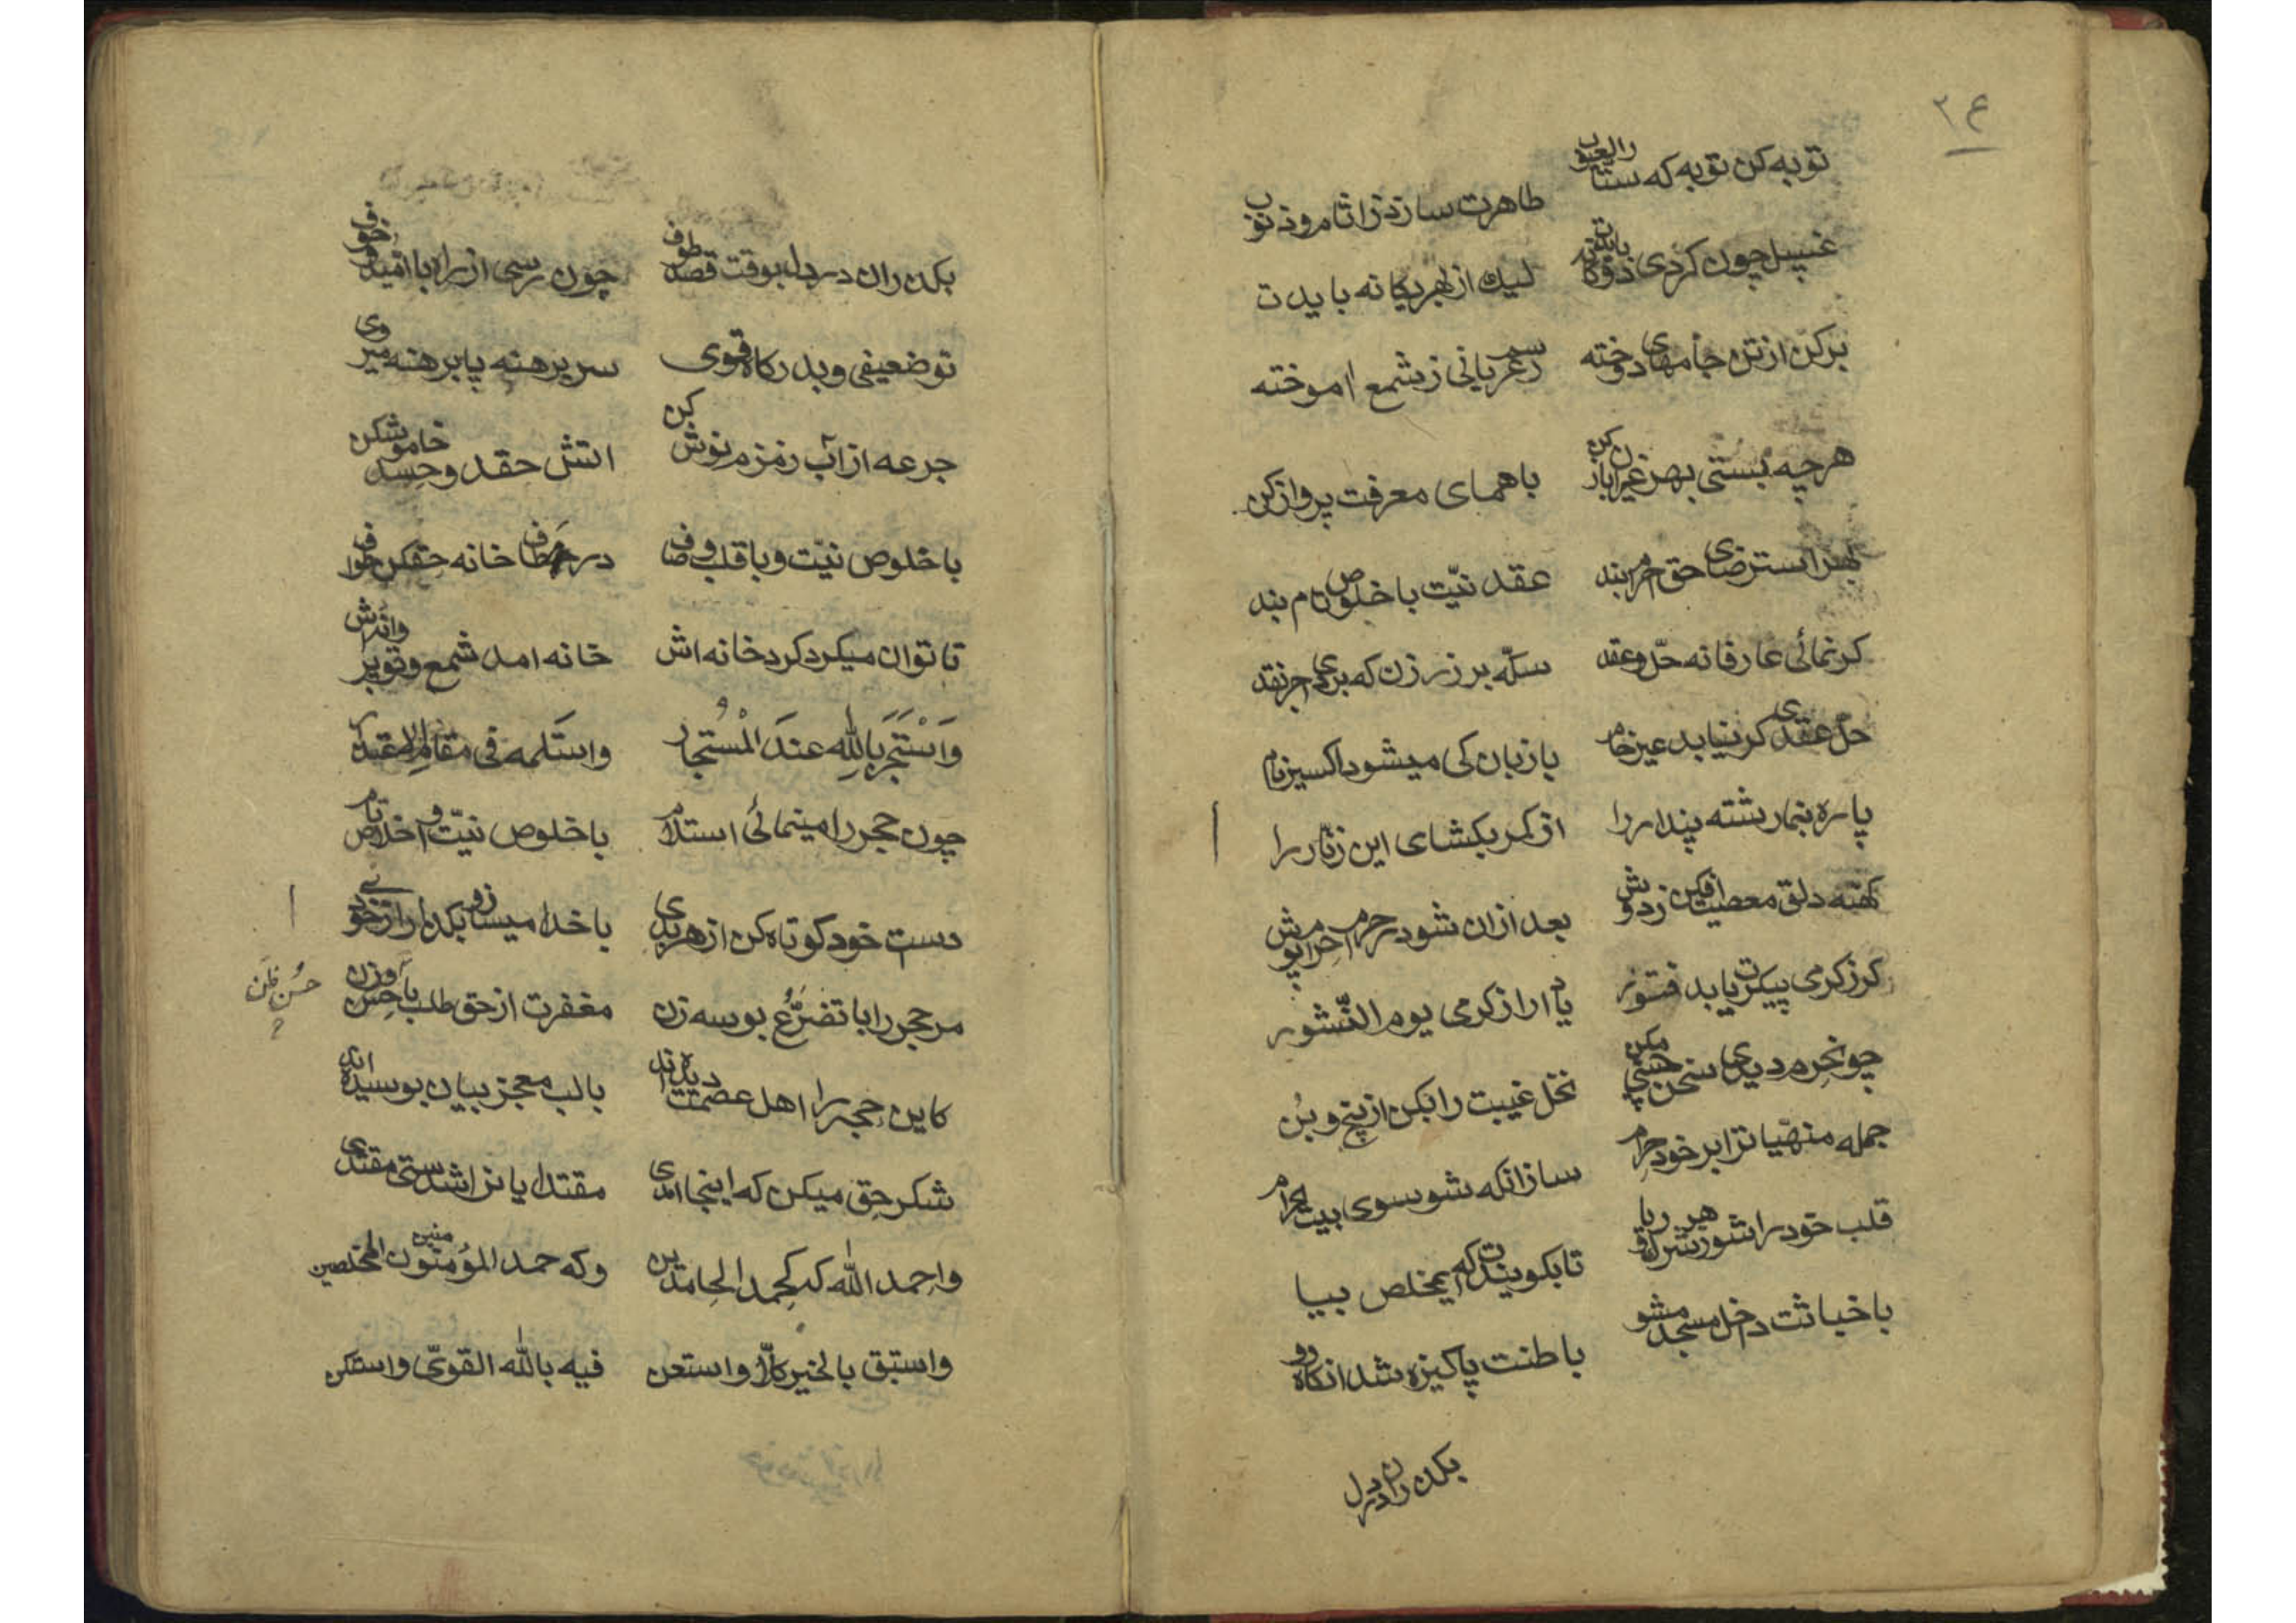 ۲۶
توبه کن توبه که ستار العیوب
طاهرت سازد ز اثام و ذنوب
غسل چون کردی
لیك از بهر یکانه بایدت
برکن از تن جامهای دوخته
رسم عریانی ز شمع اموخته
هرچه بستی بهر غیر
باهمای معرفت پرواز کن
بهر استرضای حق احرام بند
عقد نیّت با خلوص
کر نمائی عارفانه حلّ و عقد
سکّه بر زر زن که بردی اجر نقد
حلّ عقدی کر نیابد عیر خام
با زبان کی میشود اکسیر نام
پاره بنما رشته پندار را
از کمر بکشای این زنّار را
کهنه دلق معصیت افکن ز دوش
بعد ازان شو در حرم احرام پوش
کر ز کرمی پیکرت یابد فتور
یاد ار از کرمی یوم النّشور
چونحرم دیدی سخن چینی مکن
نخل غیبت را بکن از بیخ و بُن
جمله منهیّات را بر خود حرام
ساز انکه شو سوی بیت الحرام
قلب خود را شو ز شرك و هر ریا
تا بکویندت که ایمخلص بیا
با خباثت داخل مسجد مشو
باطنت پاکیزه شد انکاه رو
بکذران در دل
بکذران در دل بوقت قصد طوف
چون رسی از راه با امّید و خوف
تو ضعیفی و بدرکاه قوی
سر برهنه پا برهنه میروی
جرعه از آب زمزم نوش کن
اتش حقد و حسد خاموش کن
با خلوص نیّت و با قلب صاف
در مطاف خانه حق کن طواف
تا توان میکرد کرد خانه اش
خانه امد شمع و تو پروانه اش
وَاسْتَجَرَ باللّٰهِ عندَ المُسْتجار
واستلمه فی مقام
چون حجر را مینمائی استلام
با خلوص نیّت و اخلاص تام
دست خود کوتاه کن از هر بدی
با خدا میساز و بکذر از خودی
مر حجر را با تضرُّع بوسه زن
مغفرت از حق طلب با حسن و ظن
حُسنِ ظن
؟
کاین حجر را اهل عصمت دیده اند
با لب معجز بیان بوسیده اند
شکر حق میکن که اینجا امدی
مقتدایانرا شدستی مقتدی
واحمد اللّٰه کحمد الحامدین
وکه حمد المؤمنین المخلصین
واستبق بالخیر کلّا واستعن
فیه باللّٰه القویّ واستکن